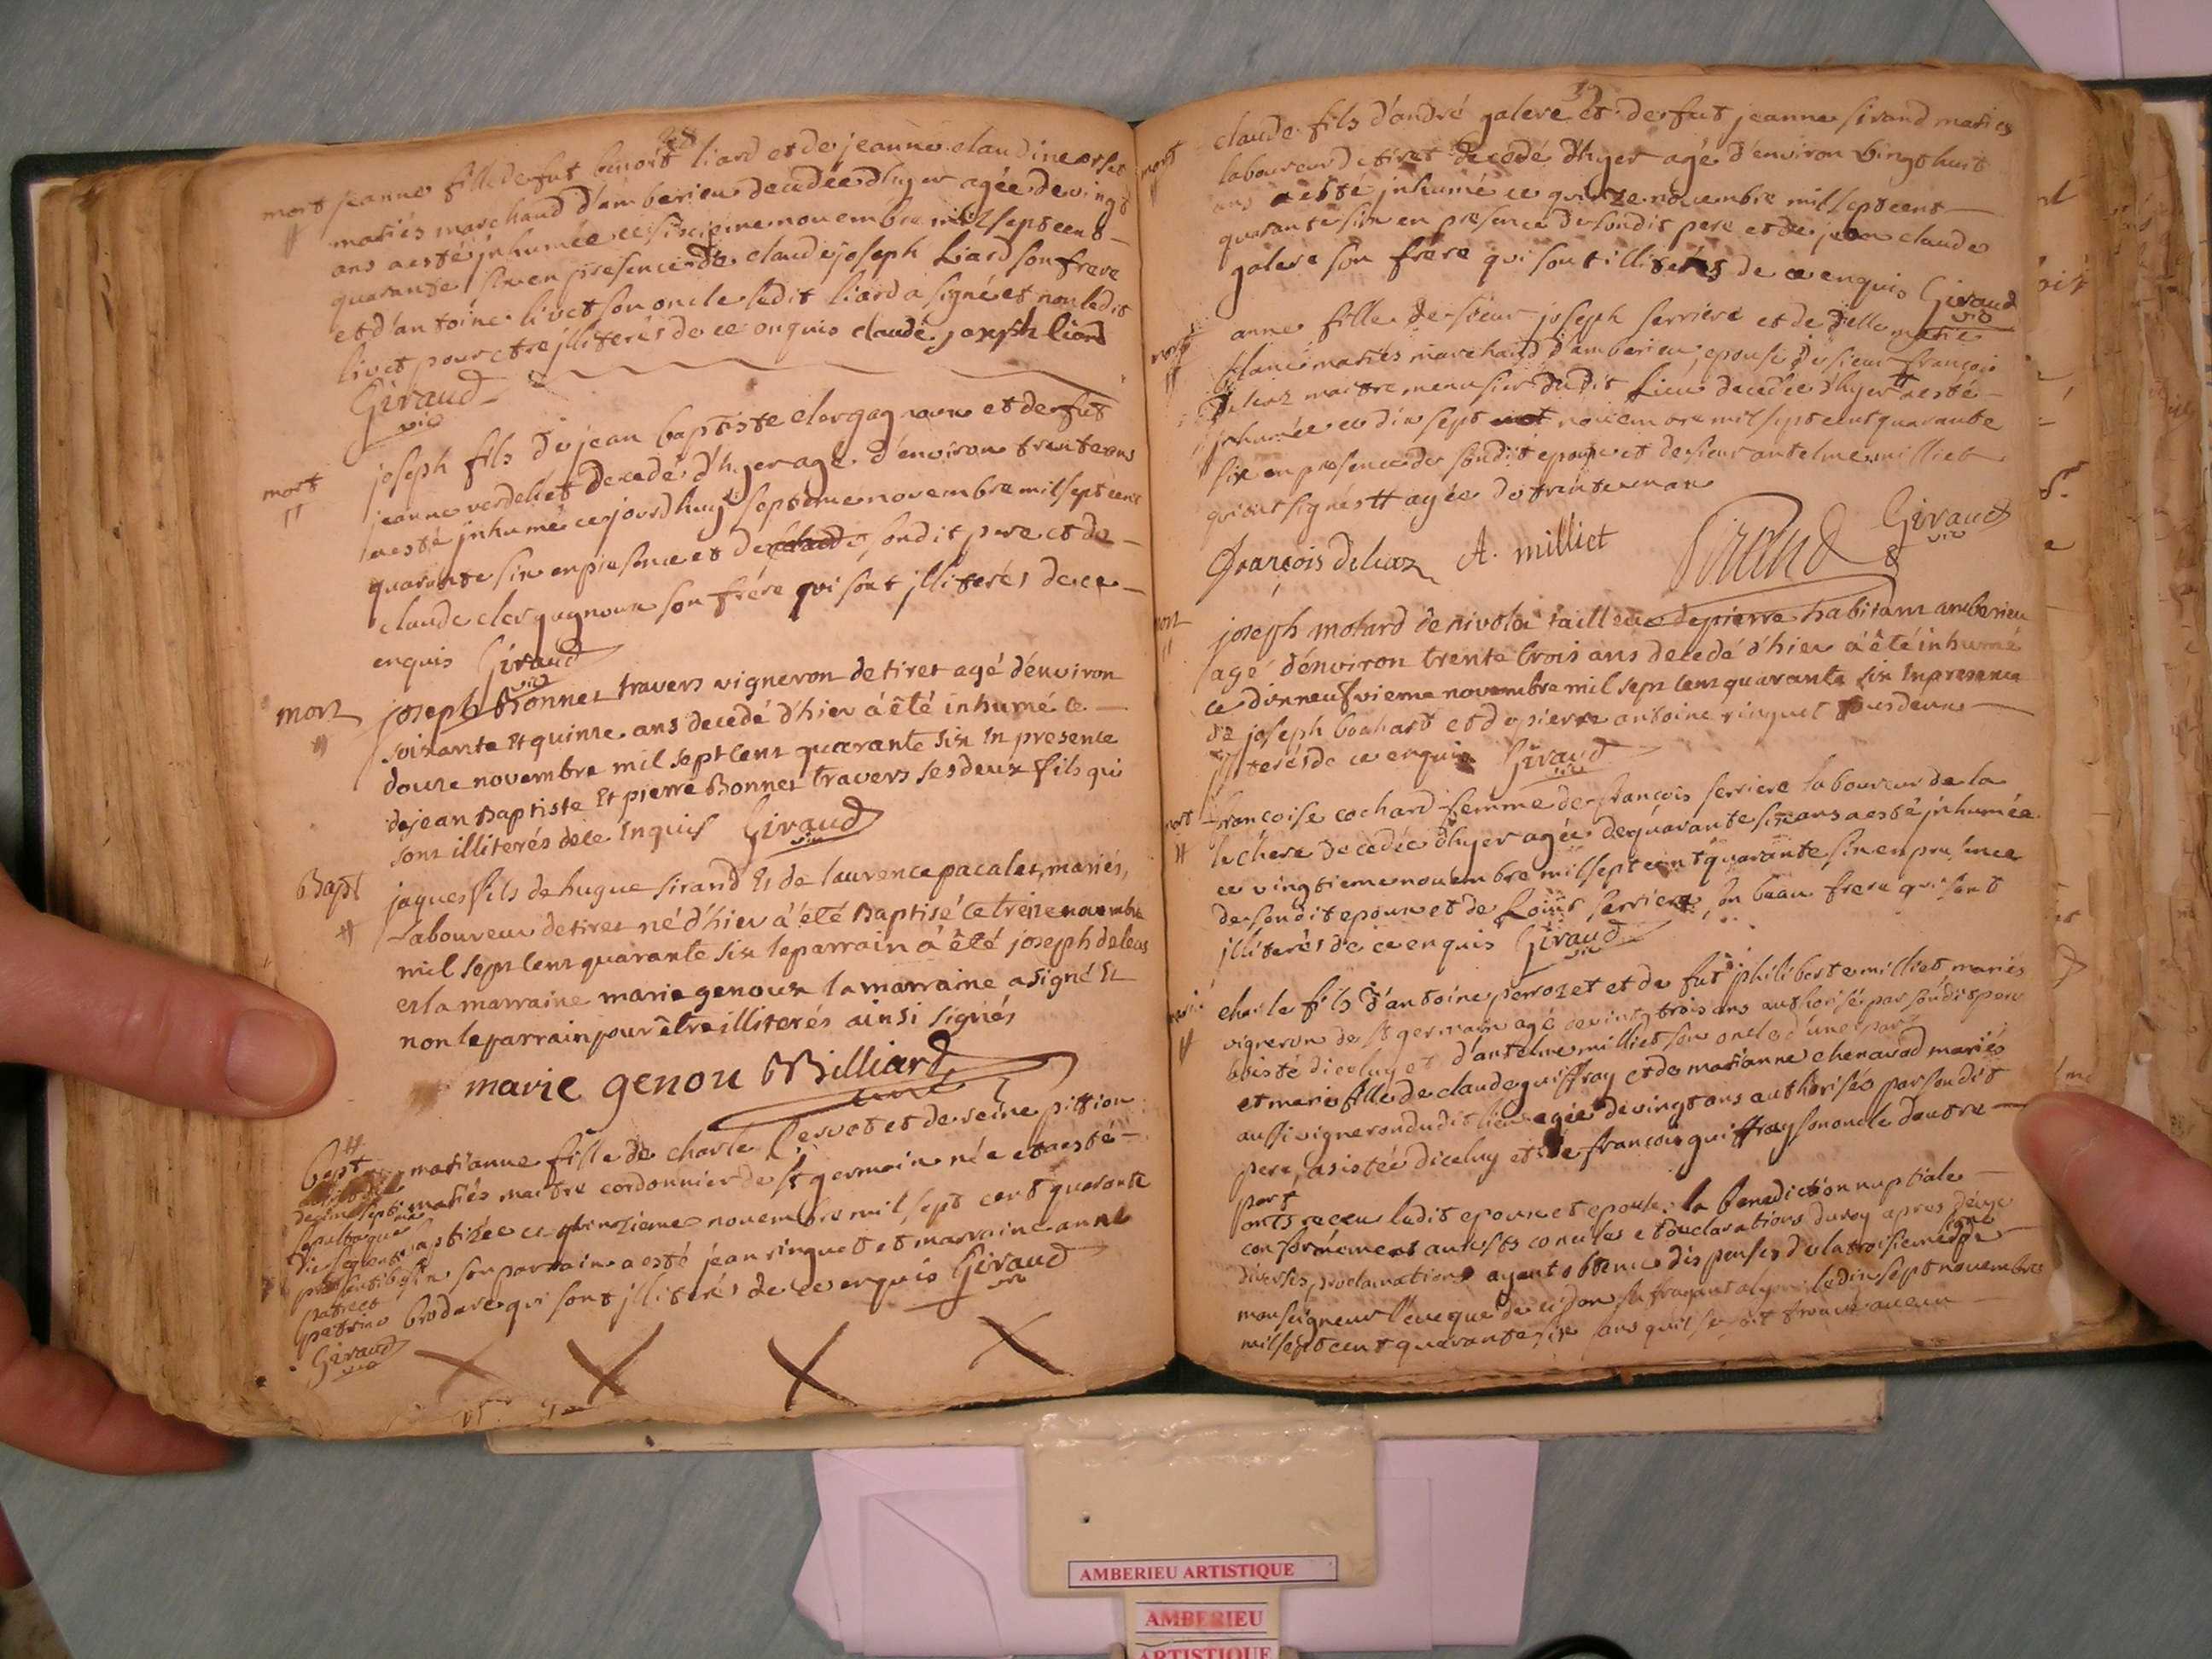 mort
jeanne fille de fut benoit liard et de jeanne claudine orset
mariés marchand d'amberieu decedée dhyer agée de vingt
ans a esté jnhumée ce sixieme novembre mil sept cent
quarante six en presence de claude joseph liard son frere
et d'antoine livet son oncle ledit liard a signé et non ledit
livet pour etre jlliterés de ce enquis claude joseph liard
Giraud
vic
mort
joseph fils de jean baptiste clergagnoux et de fut
jeanne verdelet decedé d'hyer agé d'environ trente ans
a esté jnhumé cejourdhuy septieme novembre mil sept cent
quarante six en presence et de sondit pere et de
claude clergagnoux son frére qui sont jlliterés de ce
enquis Giraud
vic
mort
joseph Bonnet travers vigneron de tiret agé d'environ
soixante et quinze ans decedé d'hier a êté inhumé le
douze novembre mil sept cent quarante six in presence
de jean Baptiste et pierre Bonnet travers ses deux fils qui
sont illiterés de ce inquis Giraud
vic
Bapt
jaques fils de hugue sirand et de laurence pacalet, mariés,
laboureur de tiret né d'hier a été Baptisé le treize novembre
mil sept cent quarante six le parrain a êté joseph deleas
et la marraine marie genoux la marraine a signé et
non le parrain pour être illiterés ainsi signés
marie genou Billiard
curé
bapt
marianne fille de charle servot et de reine pittion
mariés maitre cordonnier de st germain née et a esté
baptizée ce quinzieme novembre mil sept cent quarante
six son parrain a esté jean ringuet et marraine anne
brodare qui sont jlliterés de ce enquis Giraud
vic
patrino
Giraud
vic
mort
claude fils d'andré galere et de fut jeanne sirand mariés
laboureur de tiret decedé d'hyer agé d'environ vingt huit
ans a esté jnhumé ce quinze novembre mil sept cent
quarante six en presence de sondit pere et de jean claude
galere son frére qui sont illiterés de ce enquis Giraud
vic
mort
anne fille de sieur joseph serriere et de delle marie
blanc mariés marchand d'amberieu epouse de sieur françois
deleaz maitre menusier dudit lieu decedée dhyer # a esté
jnhumée ce dix sept novembre mil sept cent quarante
six en presence de sondit epoux et de sieur antelme milliet
qui ont signés # agée de trente un an
François deleaz A. milliet Sirand Giraud
vic
mort
joseph motard de nivolai tailleur de pierre habitant amberieu
agé d'environ trente trois ans decedé d'hier a êté inhumé
ce dixneufvieme novembre mil sept cent quarante six in presence
de joseph bochard et de pierre antoine ringuet tous deux
jlliterés de ce enquis Giraud
vic
mort
francoise cochard femme de francois serriere laboureur de la
lechere decedée dhyer agée de quarante six ans a esté jnhumée
ce vingtieme novembre mil sept cent quarante six en presence
de sondit epoux et de Louis serriere, son beau frere qui sont
jlliterés de ce enquis Giraud
vic
charle fils d'antoine perrozet et de fut philiberte milliet mariés
vigneron de st germain agé de vingt trois ans authorisé par sondit pere
assisté diceluy et d'antelme milliet son oncle d'une part
et marie fille de claude guiffray et de marianne chenavad mariés
aussi vigneron dudit lieu agée de vingt ans authorisée par sondit
pere, assistée diceluy et de françois guiffray son oncle dautre
part
onts receu ledit epoux et epouse la benediction nuptiale
conformement aux sts conciles et declarations du roy apres deux
diverses proclamations ayant obtenu dispense de la troisieme signé
monseigneur l'eveque de sidon suffragant a lyon le dix sept novembre
mil sept cent quarante six sans quil se soit trouvé aucun
AMBERIEU ARTISTIQUE
AMBERIEU
ARTISTIQUE